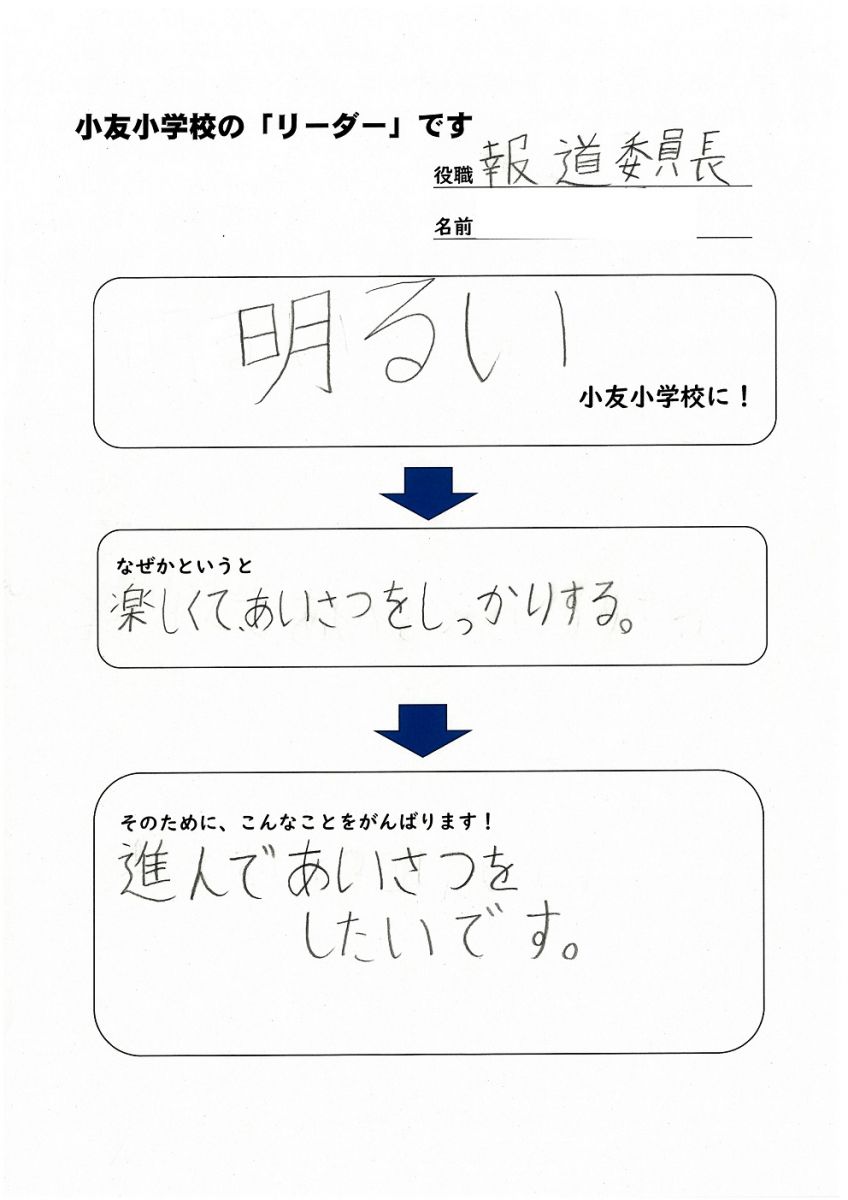 小友小学校の「リーダー」です
役職 報道委員長
名前
明るい
小友小学校に！
なぜかというと
楽しくて、あいさつをしっかりする。
そのために、こんなことをがんばります！
進んであいさつを
したいです。